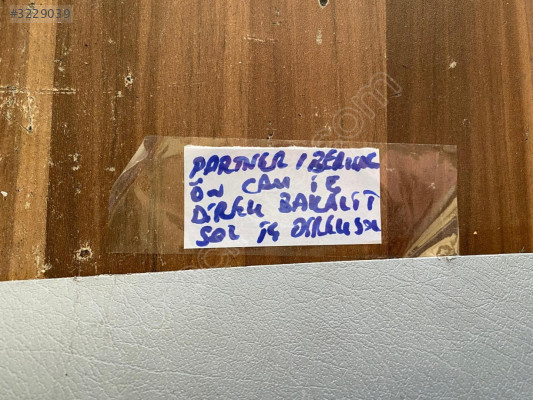 #3229039
PARTNER / BERLİNG
ÖN CAM İÇ
DİREK BAKALİT
SOL İÇ DİREĞİ